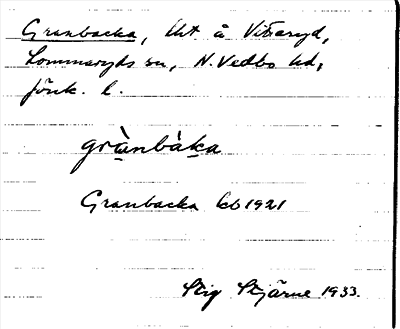 Granbacka, lht å Vitaryd,
Lommaryds sn, N. Vedbo hd,
Jönk. l.
grànbàka
Granbacka kb 1921
Stig Stjärne 1933.